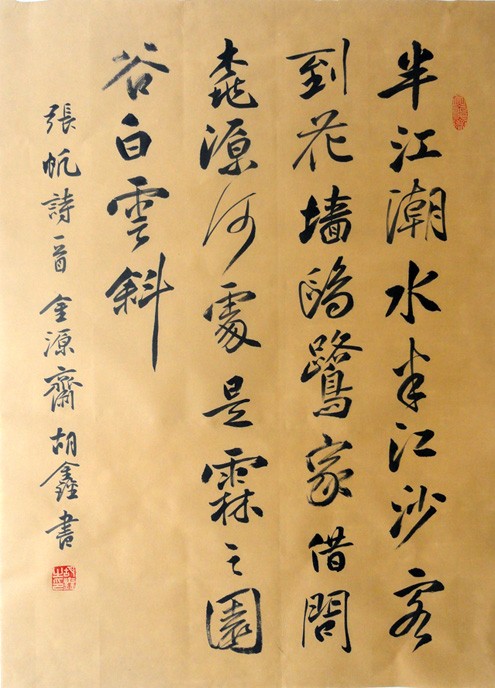 半江潮水半江沙客
到花墙鷗鷺家借問
桃源何處是霖之園
谷白雲斜
張帆詩一首 金源齋胡鑫書